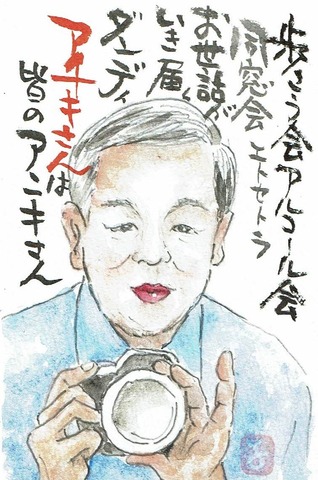 歩こう会アルコール会
同窓会エトセトラ
お世話が
いき届く
ダンディ
アオキさんは
皆のアニキさん